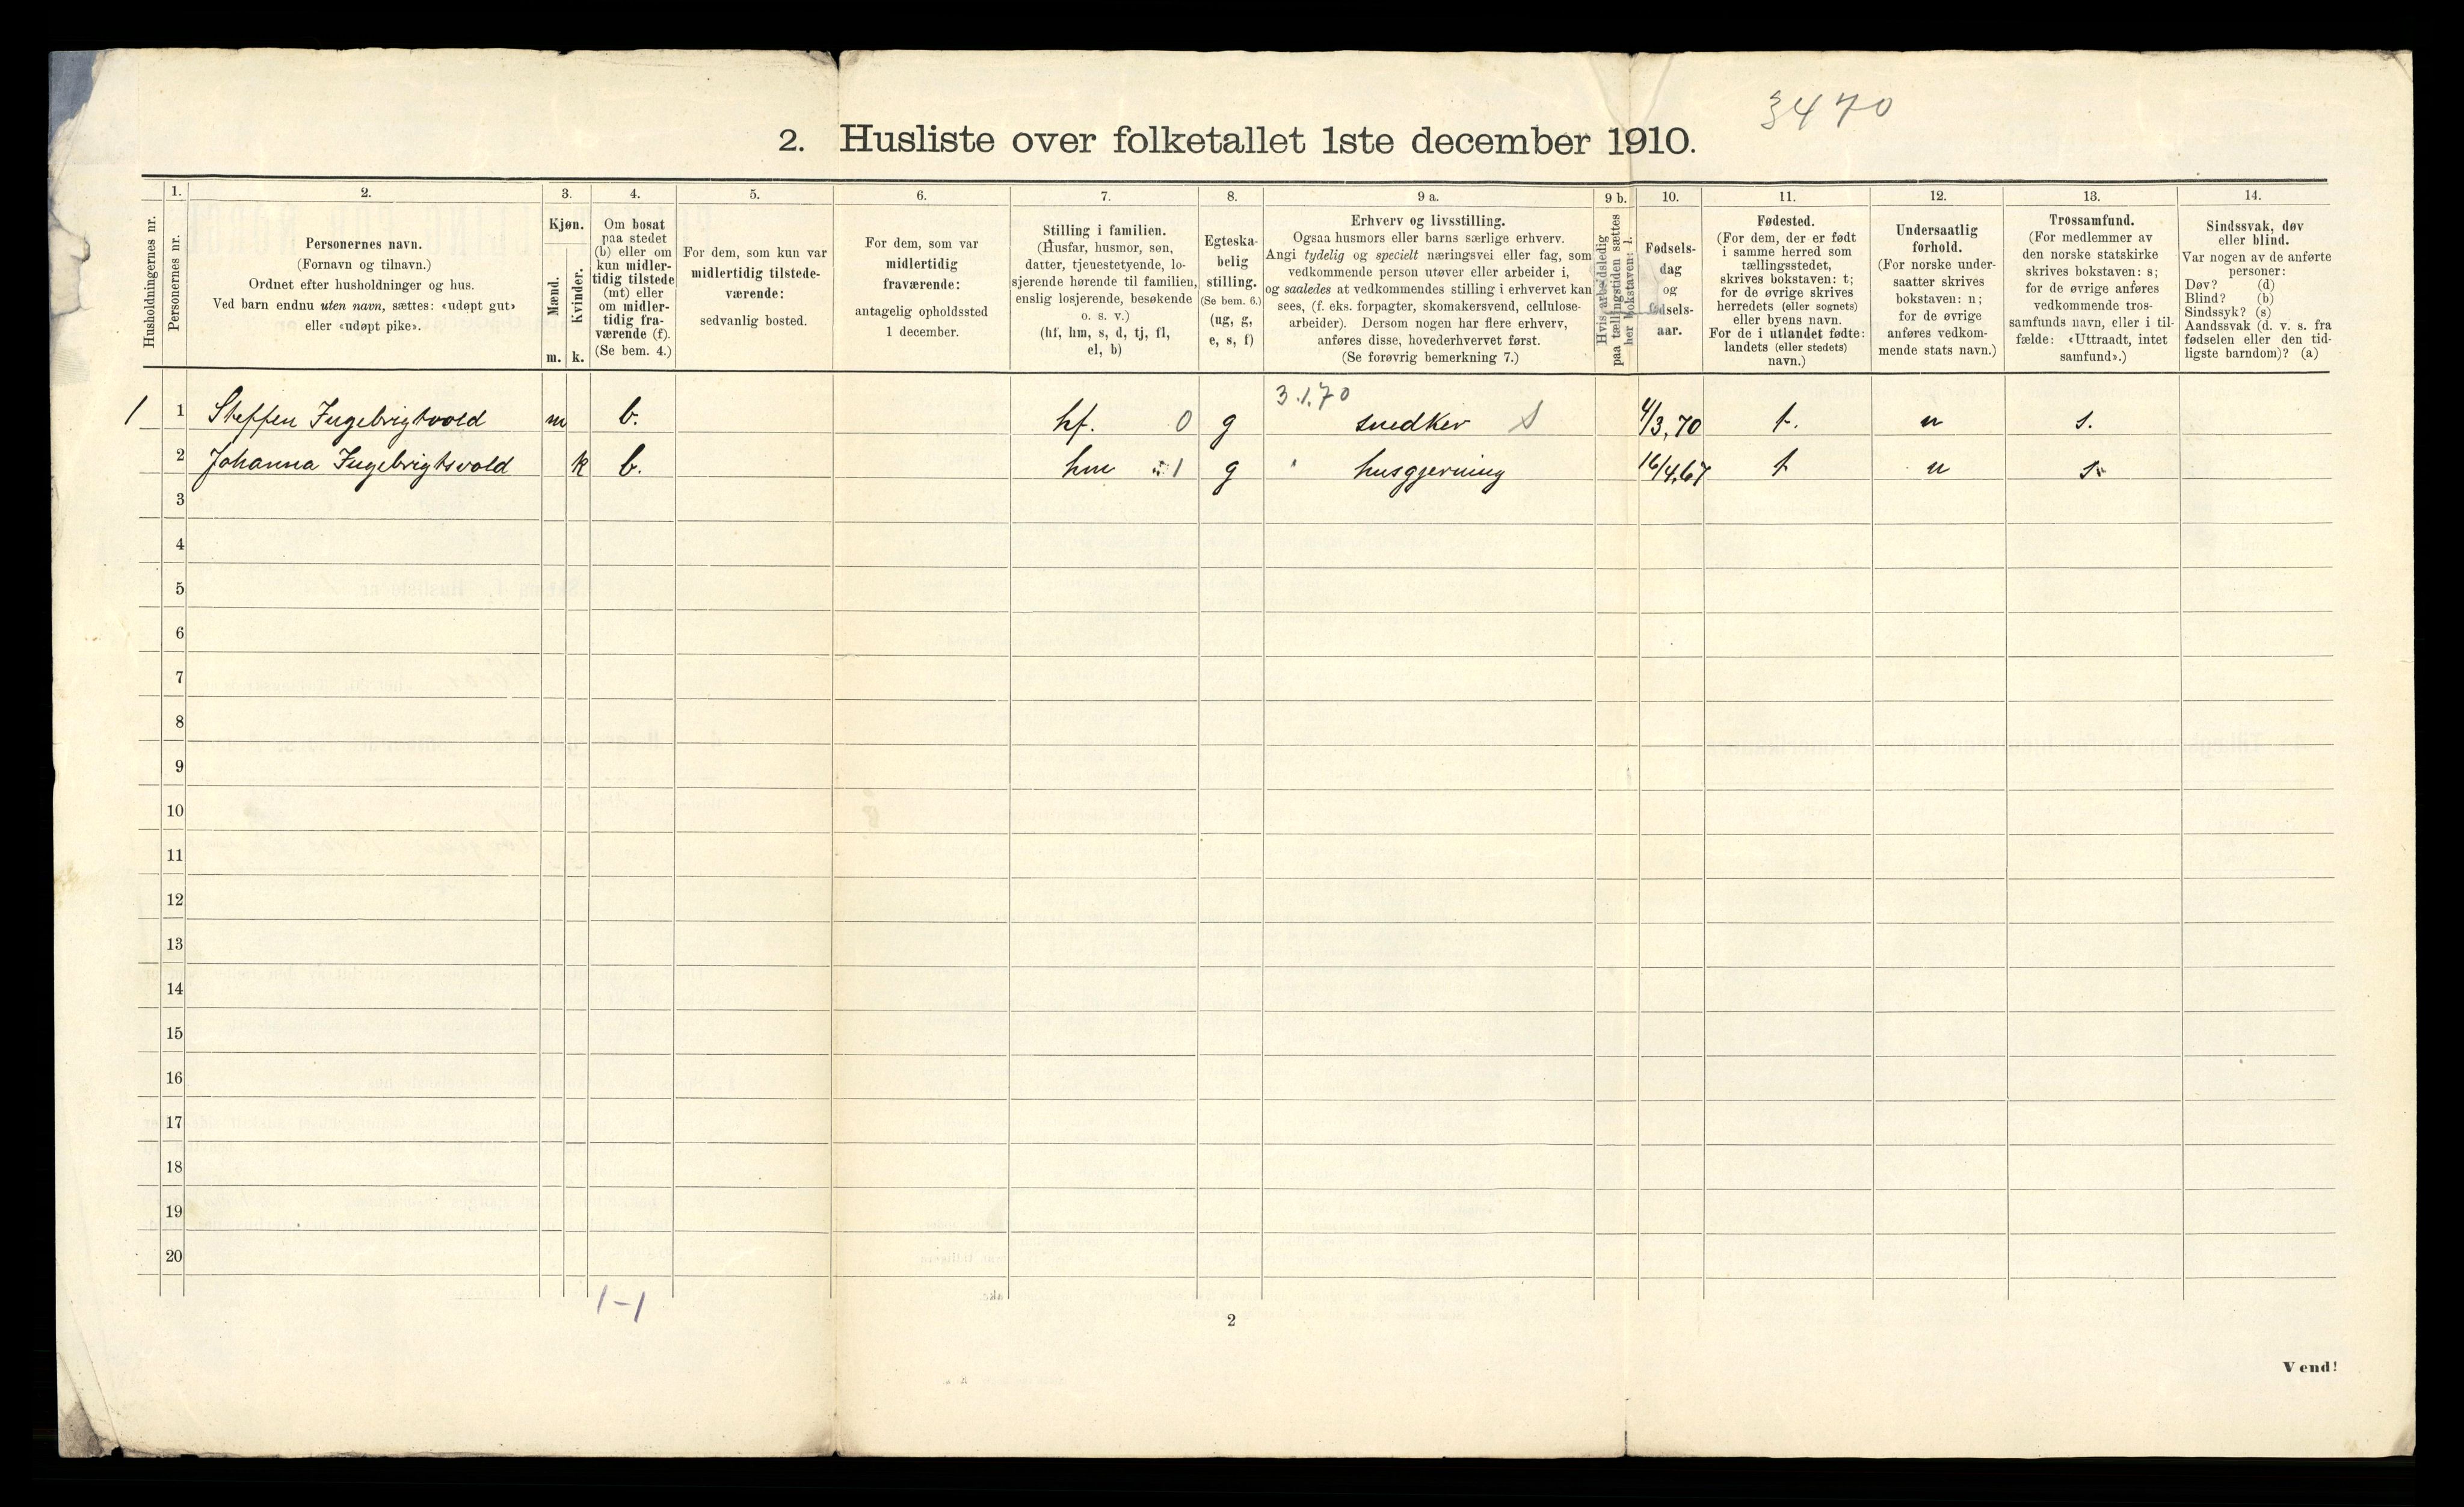 3470
2. Husliste over folketallet 1ste december 1910.
Husholdningernes nr.
1.
Personernes nr.
2.
Personernes navn.
(Fornavn og tilnavn.)
Ordnet efter husholdninger og hus.
Ved barn endnu uten navn, sættes: «udøpt gut»
eller «udøpt pike».
3.
Kjøn.
Mænd.
Kvinder.
m.
k.
4.
Om bosat
paa stedet
(b) eller om
kun midler-
tidig tilstede
(mt) eller
om midler-
tidig fra-
værende (f).
(Se bem. 4.)
5.
For dem, som kun var
midlertidig tilstede-
værende:
sedvanlig bosted.
6.
For dem, som var
midlertidig
fraværende:
antagelig opholdssted
1 december.
7.
Stilling i familien.
(Husfar, husmor, søn,
datter, tjenestetyende, lo-
sjerende hørende til familien,
enslig losjerende, besøkende
o. s. v.)
(hf, hm, s, d, tj, fl,
el, b)
8.
Egteska-
belig
stilling.
(Se bem. 6.)
(ug, g,
e, s, f)
9 a.
Erhverv og livsstilling.
Ogsaa husmors eller barns særlige erhverv.
Angi tydelig og specielt næringsvei eller fag, som
vedkommende person utøver eller arbeider i,
og saaledes at vedkommendes stilling i erhvervet kan
sees, (f. eks. forpagter, skomakersvend, cellulose-
arbeider). Dersom nogen har flere erhverv,
anføres disse, hovederhvervet først.
(Se forøvrig bemerkning 7.)
9 b.
Hvis arbeidsledig
paa tællingstiden sættes
her bokstaven: l.
10.
Fødsels-
dag
og
fødsels-
aar.
11.
Fødested.
(For dem, der er født
i samme herred som
tællingsstedet,
skrives bokstaven: t;
for de øvrige skrives
herredets (eller sognets)
eller byens navn.
For de i utlandet fødte:
landets (eller stedets)
navn.)
12.
Undersaatlig
forhold.
(For norske under-
saatter skrives
bokstaven: n;
for de øvrige
anføres vedkom-
mende stats navn.)
13.
Trossamfund.
(For medlemmer av
den norske statskirke
skrives bokstaven: s;
for de øvrige anføres
vedkommende tros-
samfunds navn, eller i til-
fælde: «Uttraadt, intet
samfund».)
14.
Sindssvak, døv
eller blind.
Var nogen av de anførte
personer:
Døv? (d)
Blind? (b)
Sindssyk? (s)
Aandssvak (d. v. s. fra
fødselen eller den tid-
ligste barndom)? (a)
3.1.70
1 1 Steffen Ingebrigtvold m b. hf. 0 g snedker S 4/3,70 t. n s.
2 Johanna Ingebrigtsvold k b. hm 1 g husgjerning 16/4,67 t n s.
3
4
5
6
7
8
9
10
11
12
13
14
15
16
17
18
19
20
1-1
2
Vend!